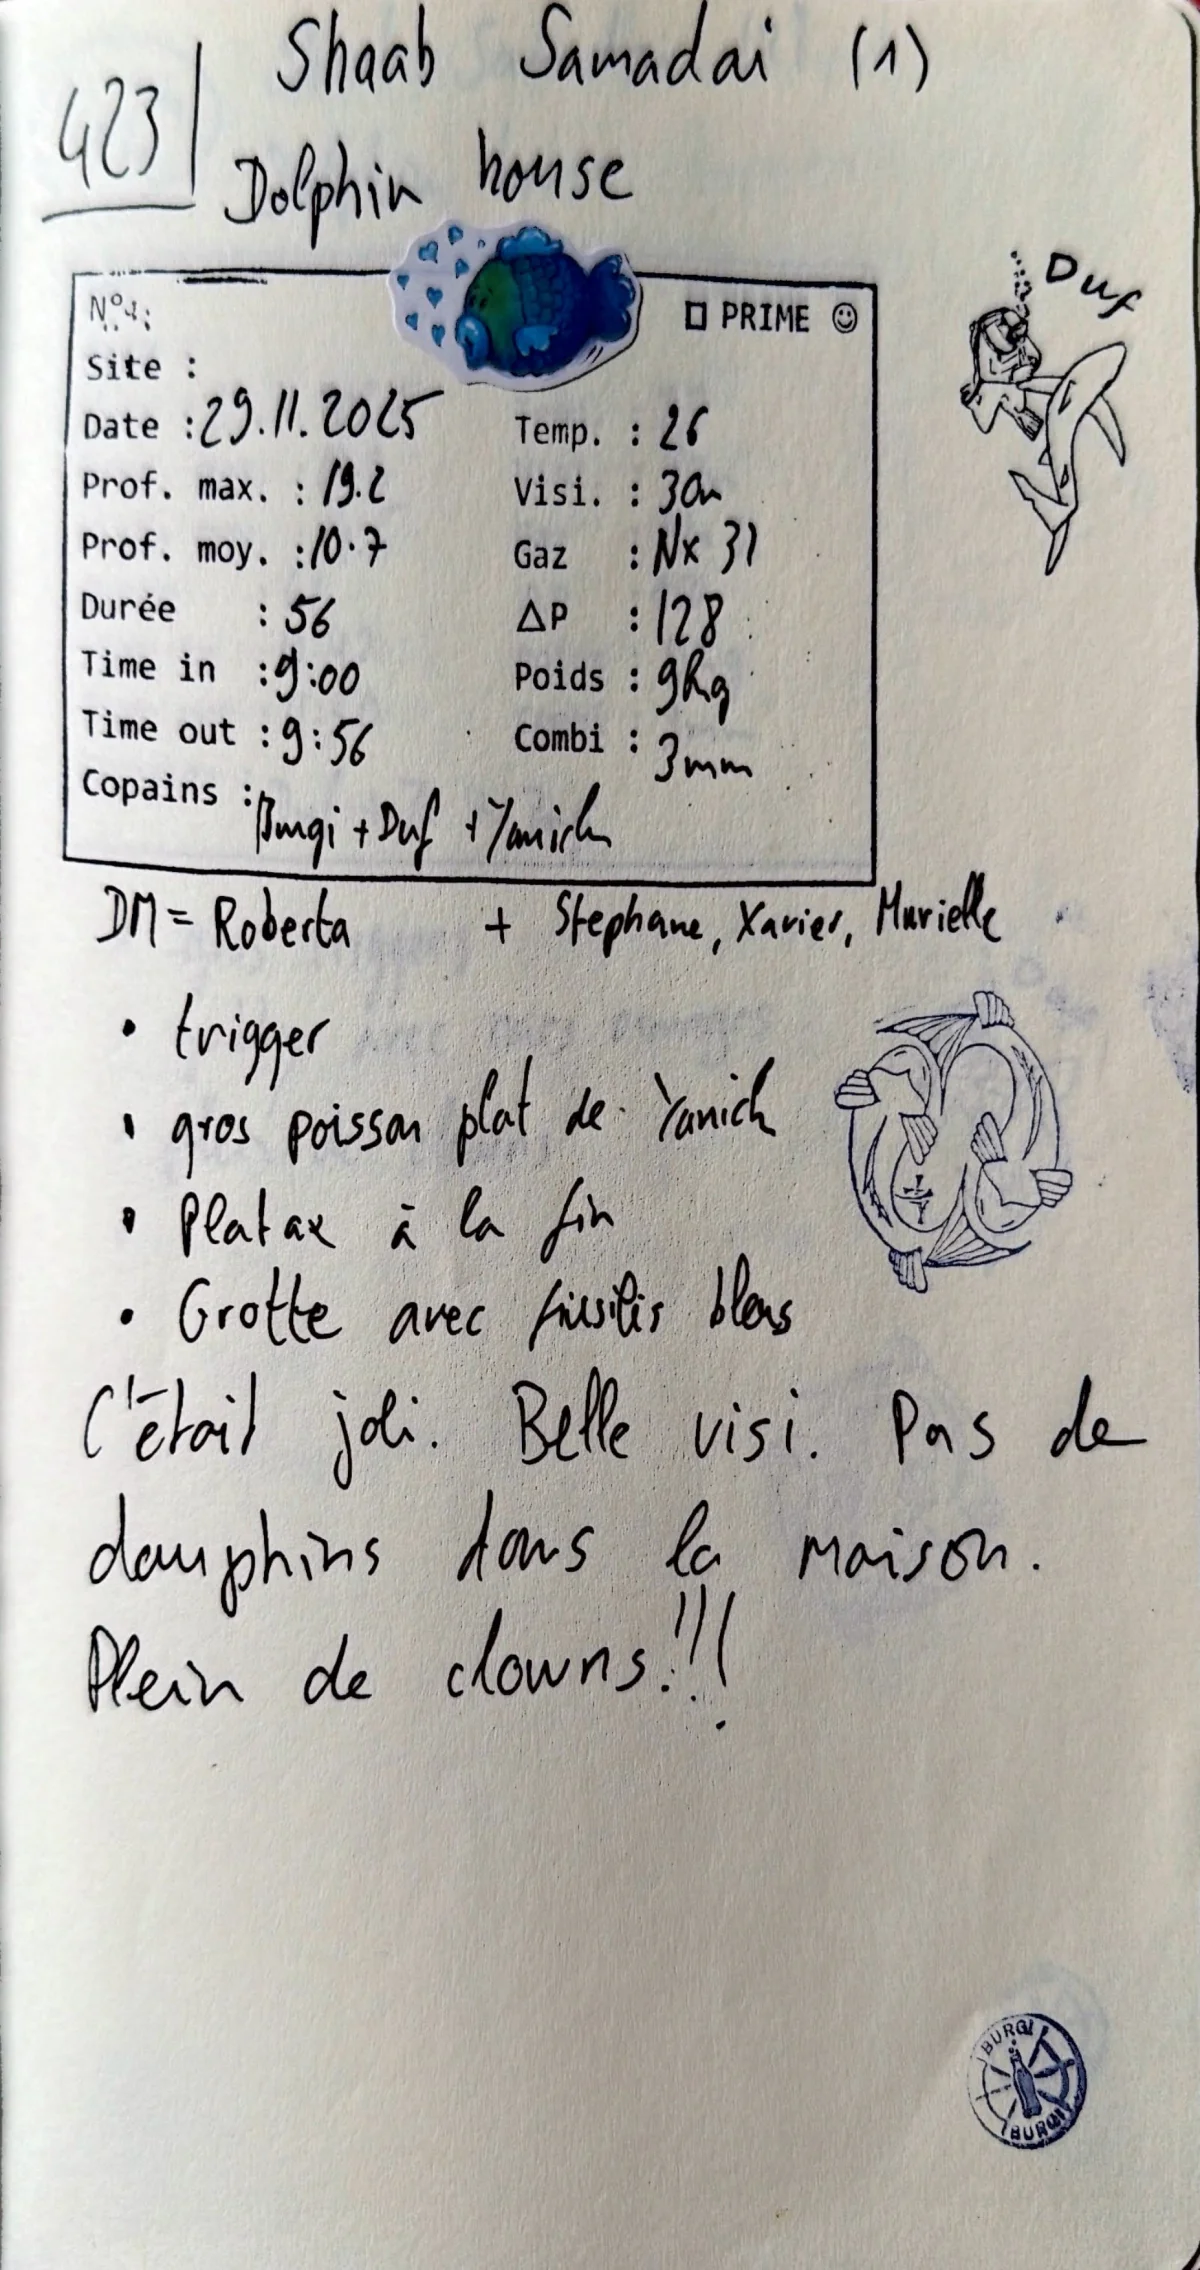 423
Shaab Samadai (1)
Dolphin house
N°
□ PRIME ☺
Site :
Date : 29.11.2025
Temp. : 26
Prof. max. : 19.2
Visi. : 30m
Prof. moy. : 10.7
Gaz : Nx 31
Durée : 56
ΔP : 128
Time in : 9:00
Poids : 9kg
Time out : 9:56
Combi : 3mm
Copains : Burgi + Duf + Yanick
Duf
DM = Roberta + Stephane, Xavier, Murielle
• trigger
• gros poisson plat de Yanick
• Platax à la fin
• Grotte avec bleus
C'était joli. Belle visi. Pas de
dauphins dans la maison.
Plein de clowns!!!
BURGI
BURGI